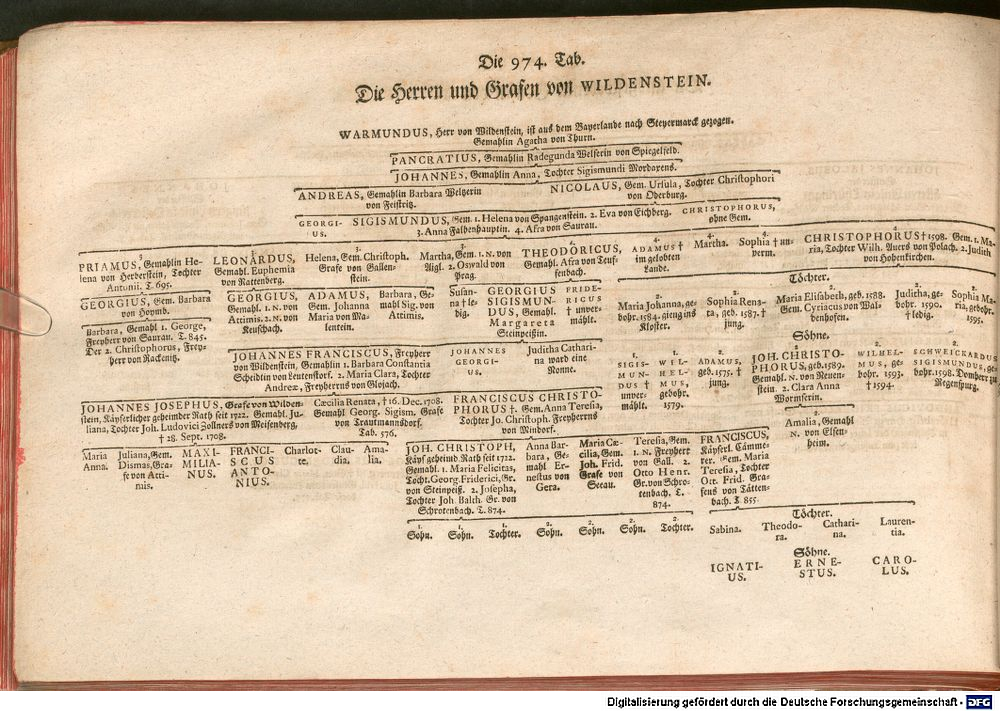 Die 974. Tab.
Die Herren und Grafen von WILDENSTEIN.
WARMUNDUS, Herr von Wildenstein, ist aus dem Bayerlande nach Steyermarck gezogen.
Gemahlin Agatha von Thurn.
PANCRATIUS, Gemahlin Radegunda Welserin von Spiegelfeld.
JOHANNES, Gemahlin Anna, Tochter Sigismundi Mordaxens.
ANDREAS, Gemahlin Barbara Weltzerin
von Feistritz.
NICOLAUS, Gem. Ursula, Tochter Christophori
von Oderburg.
GEORGI-
US.
SIGISMUNDUS, Gem. 1. Helena von Spangenstein. 2. Eva von Eichberg.
3. Anna Falbenhauptin. 4. Afra von Saurau.
CHRISTOPHORUS,
ohne Gem.
PRIAMUS, Gemahlin He-
lena von Herberstein, Tochter
Antonii. T. 695.
LEONARDUS,
Gemahl. Euphemia
von Rattenberg.
3.
Helena, Gem. Christoph.
Grafe von Gallen-
stein.
Martha, Gem. 1. N. von
Aigl. 2. Oswald von
Prag.
4.
THEODORICUS,
Gemahl. Afra von Teuf-
fenbach.
4.
ADAMUS †
im gelobten
Lande.
4.
Martha.
4.
Sophia † un-
verm.
4.
CHRISTOPHORUS † 1598. Gem. 1. Ma-
ria, Tochter Wilh. Auers von Polach. 2. Judith
von Hohenkirchen.
GEORGIUS, Gem. Barbara
von Hoymb.
GEORGIUS,
Gemahl. 1. N. von
Attimis. 2. N. von
Keuschach.
ADAMUS,
Gem. Johanna
Maria von Ma-
lentein.
Barbara, Ge-
mahl Sig. von
Attimis.
Susan-
na † le-
dig.
GEORGIUS
SIGISMUN-
DUS, Gemahl.
Margareta
Steinpeißin.
FRIDE-
RICUS
† unver-
mählt.
Töchter.
2.
Maria Johanna, ge-
bohr. 1584. gieng ins
Kloster.
2.
Sophia Rena-
ta, geb. 1587. †
jung.
2.
Maria Elisabeth, geb. 1588.
Gem. Cyriacus von Wal-
denhofen.
2.
Juditha, ge-
bohr. 1590.
† ledig.
2.
Sophia Ma-
ria, gebohr.
1595.
Barbara, Gemahl 1. George,
Freyherr von Saurau. T. 845.
Der 2. Christophorus, Frey-
herr von Racknitz.
JOHANNES FRANCISCUS, Freyherr
von Wildenstein, Gemahlin 1. Barbara Constantia
Scheidlin von Leutenstorf. 2. Maria Clara, Tochter
Andreæ, Freyherrns von Glojach.
JOHANNES
GEORGI-
US.
Juditha Cathari-
na ward eine
Nonne.
Söhne.
1.
SIGIS-
MUN-
DUS †
unver-
mählt.
1.
WIL-
HEL-
MUS,
gebohr.
1579.
2.
ADAMUS,
geb. 1575. †
jung.
2.
JOH. CHRISTO-
PHORUS, geb. 1589.
Gemahl. N. von Neuen-
stein. 2. Clara Anna
Wormserin.
2.
WILHEL-
MUS, ge-
bohr. 1593.
† 1594.
2.
SCHWEICKARDUS
SIGISMUNDUS, ge-
bohr. 1598. Domherr zu
Regenspurg.
JOHANNES JOSEPHUS, Grafe von Wilden-
stein, Käyserlicher geheimder Rath seit 1722. Gemahl. Ju-
liana, Tochter Joh. Ludovici Zollners von Messenberg,
† 28. Sept. 1708.
Cæcilia Renata, † 16. Dec. 1708.
Gemahl Georg. Sigism. Grafe
von Trautmannsdorf.
Tab. 576.
FRANCISCUS CHRISTO-
PHORUS †. Gem. Anna Teresia,
Tochter Jo. Christoph. Freyherrns
von Mindorf.
2.
Amalia, Gemahl
N. von Elsen-
heim.
Maria
Anna.
Juliana, Gem.
Dismas, Gra-
fe von Atti-
mis.
MAXI-
MILIA-
NUS.
FRANCI-
SCUS
ANTO-
NIUS.
Charlot-
te.
Clau-
dia.
Ama-
lia.
JOH. CHRISTOPH,
Käys. geheimd. Rath seit 1722.
Gemahl. 1. Maria Felicitas,
Tocht. Georg. Friderici, Gr.
von Steinpeiß. 2. Josepha,
Tochter Joh. Balth. Gr. von
Schrotenbach. T. 874.
Anna Bar-
bara, Ge-
mahl Er-
nestus von
Gera.
Maria Cæ-
cilia, Gem.
Joh. Frid.
Grafe von
Seeau.
Teresia, Gem.
1. N. Freyherr
von Gall. 2.
Otto Henr.
Gr. von Schro-
tenbach. T.
874.
FRANCISCUS,
Käyserl. Cämme-
rer. Gem. Maria
Teresia, Tochter
Ott. Frid. Gra-
fens von Tätten-
bach. T. 855.
1.
Sohn.
1.
Sohn.
1.
Tochter.
2.
Sohn.
2.
Sohn.
2.
Sohn.
2.
Tochter.
Töchter.
Sabina.
Theodo-
ra.
Cathari-
na.
Lauren-
tia.
Söhne.
IGNATI-
US.
ERNE-
STUS.
CARO-
LUS.
Digitalisierung gefördert durch die Deutsche Forschungsgemeinschaft - DFG